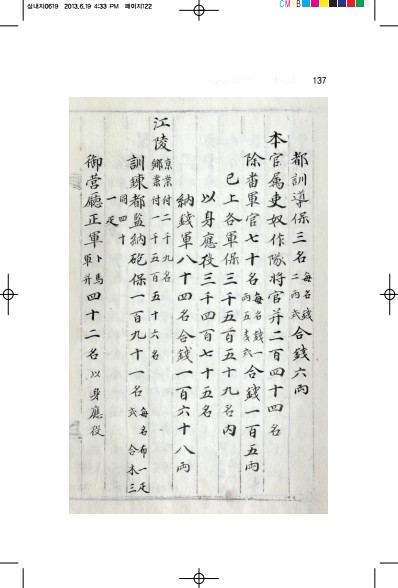 삼내지0619 2013.6.19 4:33 PM 페이지122
CM Y B
137
都訓導保三名 每名錢二兩式 合錢六兩
本官屬吏奴作隊將官并二百四十四名
除番軍官七十名 每名錢一兩五戔式 合錢一百五兩
已上各軍保三千五百五十九名內
以身應役三千四百七十五名
納錢軍八十四名合錢一百六十八兩
江陵 京案付二千九名
鄕案付一千五百五十六名
訓鍊都監納砲保一百九十一名 每名布一疋式 合木三
同四十
一疋
御營廳正軍 卜馬軍并 四十二名 以身應役